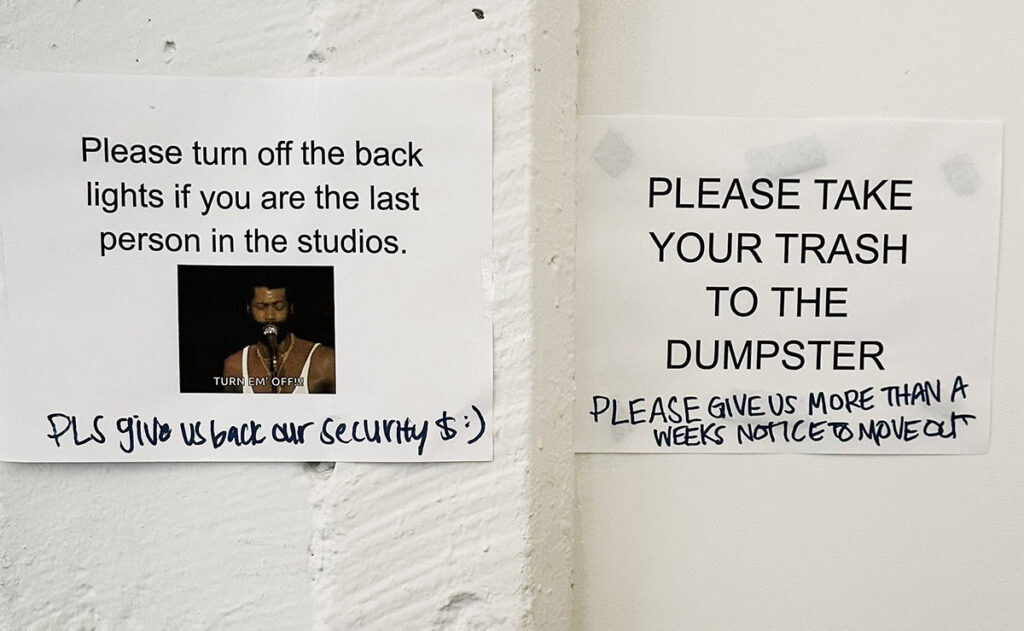 Please turn off the back
lights if you are the last
person in the studios.
TURN EM' OFF!!!
PLS give us back our security $ :)
PLEASE TAKE
YOUR TRASH
TO THE
DUMPSTER
PLEASE GIVE US MORE THAN A
WEEKS NOTICE TO MOVE OUT